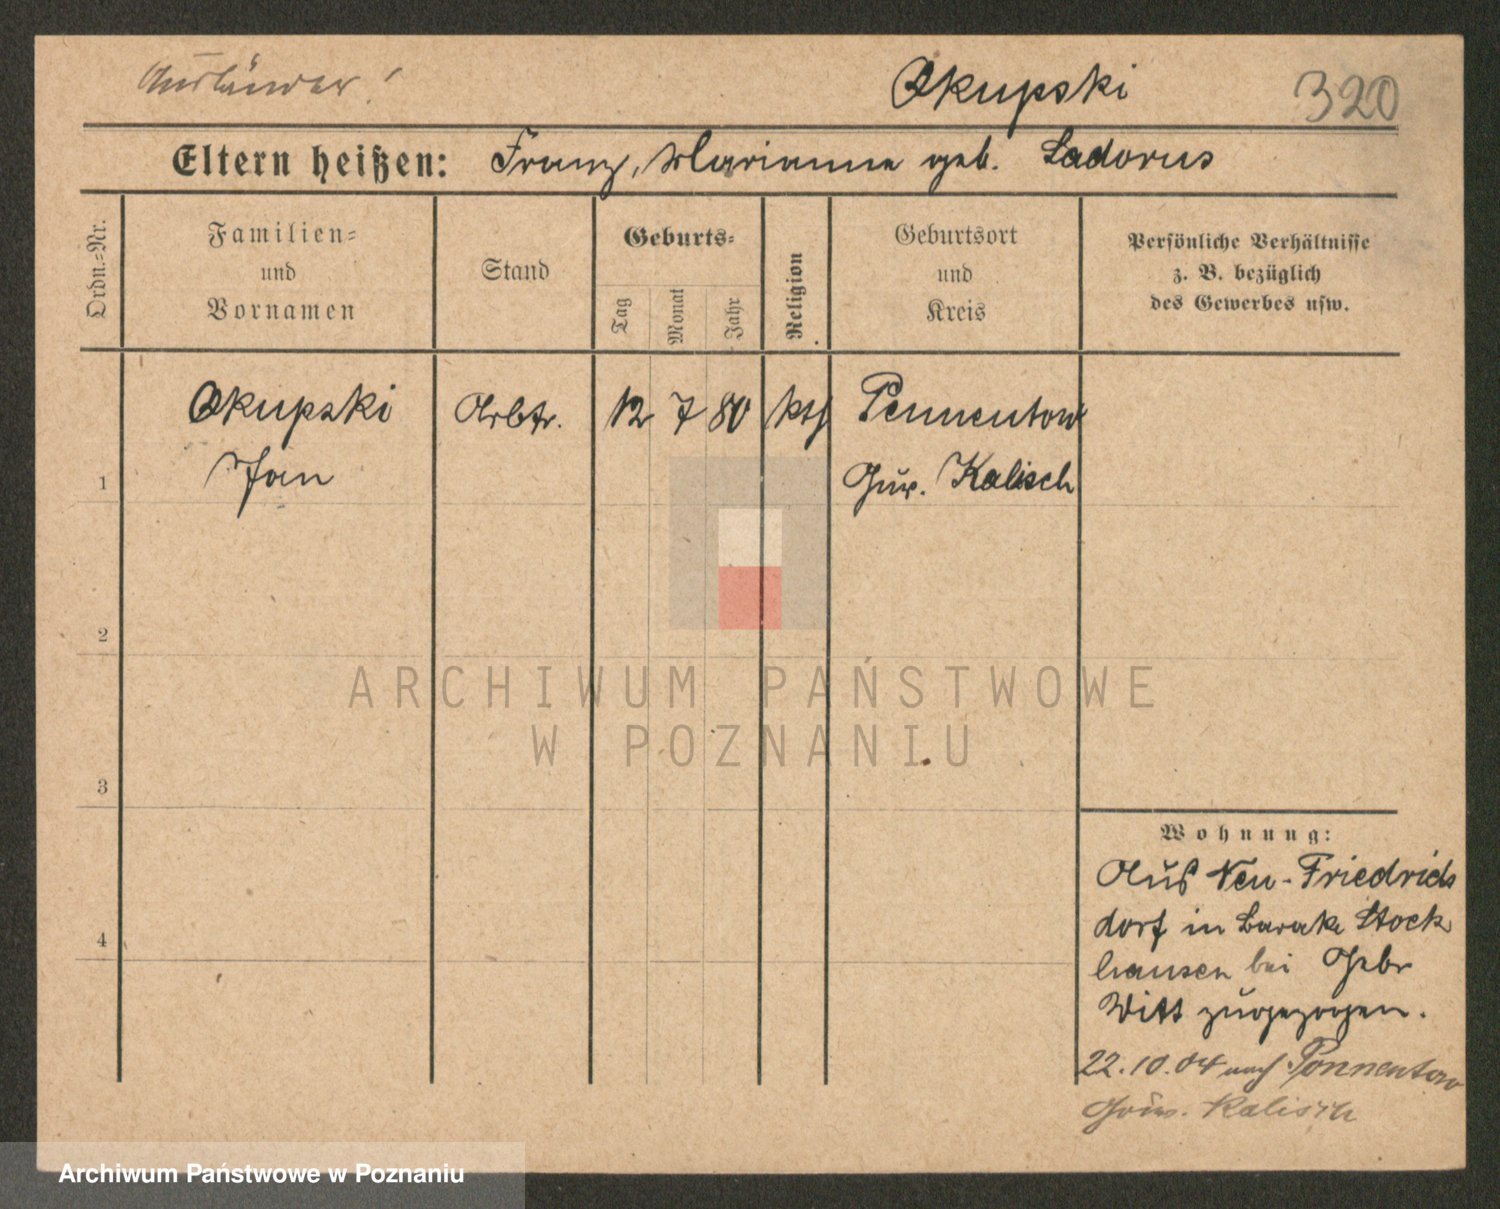 Ausländer!
Okupski
320
Eltern heißen: Franz, Marianne geb. Ladorus
Ordn.-Nr.
Familien-
und
Vornamen
Stand
Geburts-
Tag
Monat
Jahr
Religion
Geburtsort
und
Kreis
Persönliche Verhältnisse
z. B. bezüglich
des Gewerbes usw.
1
Okupski
Jan
Arbtr.
12 7 80
kth
Pennentow
Guv. Kalisch
2
3
4
ARCHIWUM PAŃSTWOWE
W POZNANIU
Wohnung:
Aus Neu-Friedrichs
dorf in Barake Stock
hausen bei Gebr
Witt zugezogen.
22.10.04 nach Ponnentow
Gouv. Kalisch
Archiwum Państwowe w Poznaniu